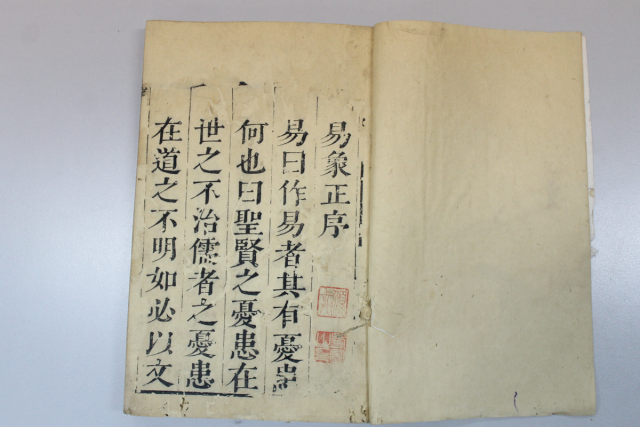 易象正序
易曰作易者其有憂患
何也曰聖賢之憂患在
世之不治儒者之憂患
在道之不明如必以文